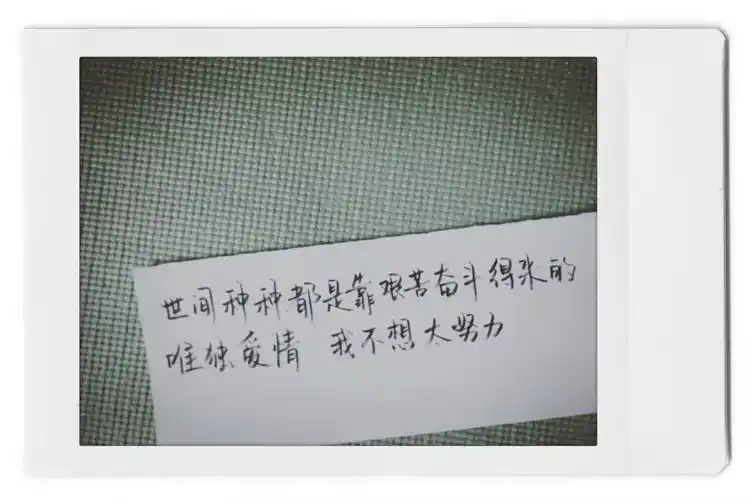 世间种种都是靠艰苦奋斗得来的
唯独爱情 我不想太努力